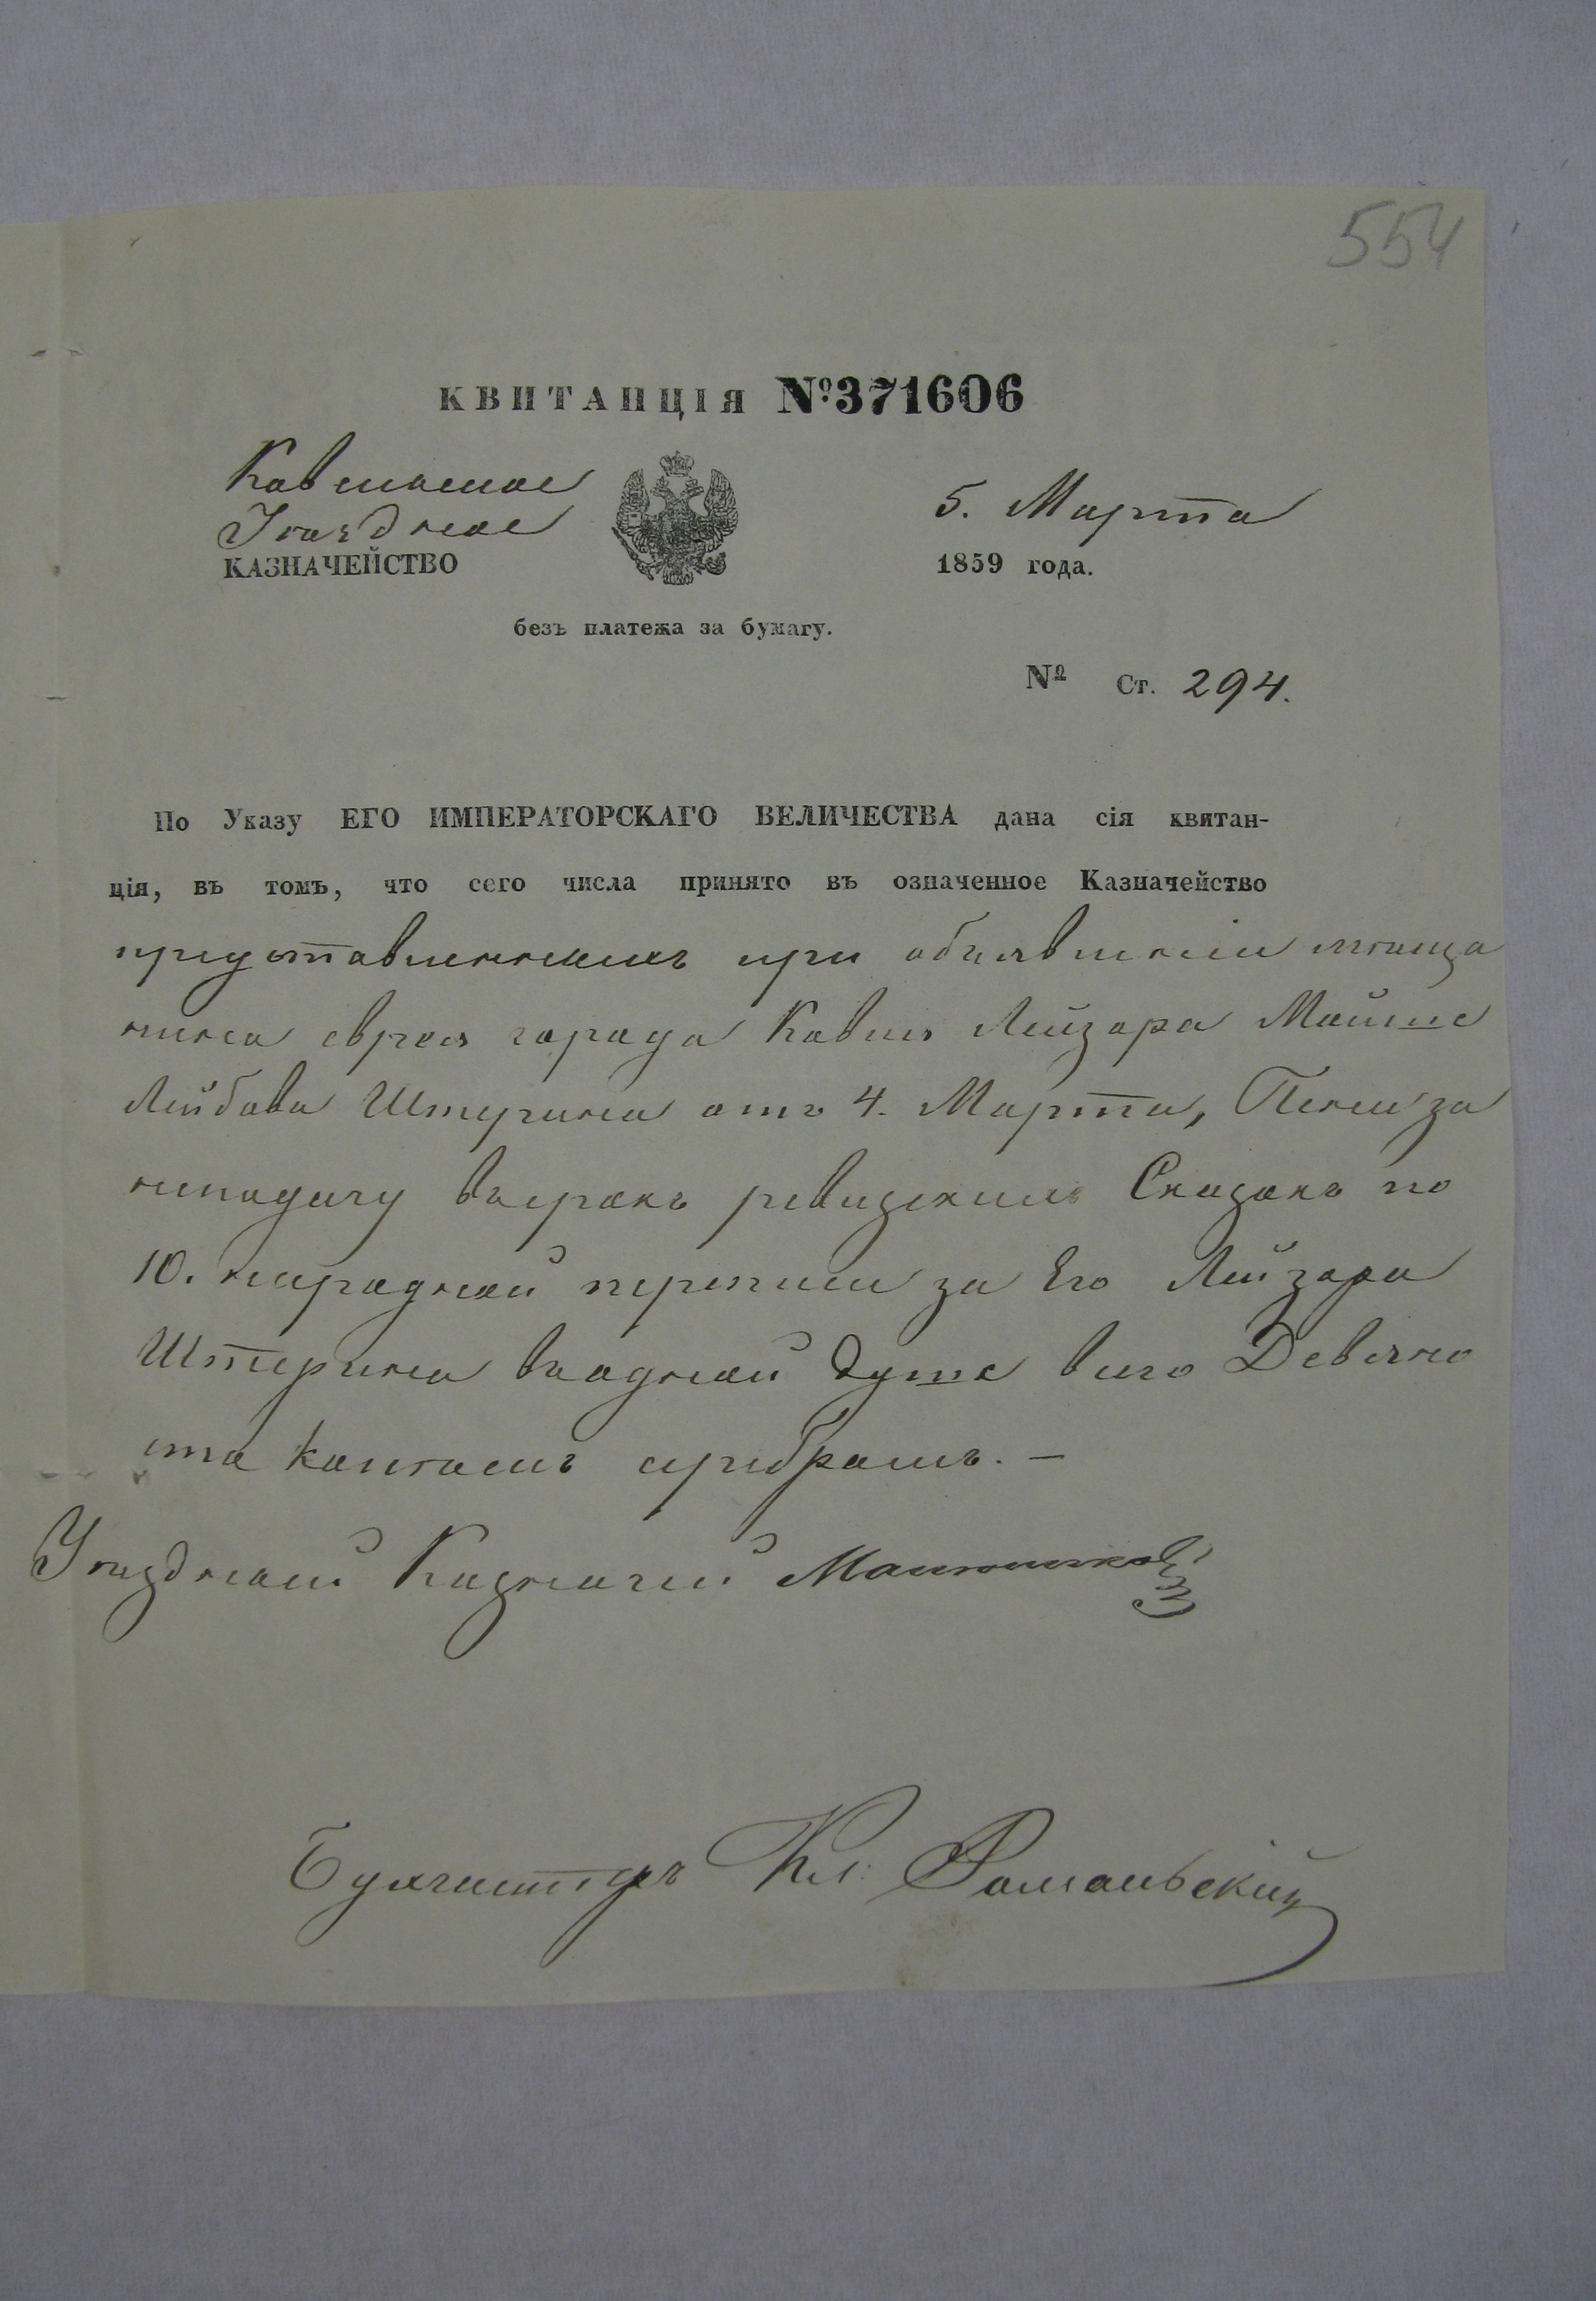 554
КВИТАНЦІЯ №371606
Ковенское
Уѣздное
КАЗНАЧЕЙСТВО
5. Марта
1859 года.
безъ платежа за бумагу.
№ Ст. 294.
По Указу ЕГО ИМПЕРАТОРСКАГО ВЕЛИЧЕСТВА дана сія квитан-
ція, въ томъ, что сего числа принято въ означенное Казначейство
представленныхъ при объявленіи мѣща
нина еврея города Ковно Лейзора Мойше
Лейбова Штерина отъ 4. Марта, Пени за
неподачу въ срокъ ревизскихъ Сказокъ по
10. народной переписи за Его Лейзора
Штерина въ одной душе всего Девяно
сто копѣекъ серебромъ. —
Уѣздной Казначей
Бухгалтеръ Романовскій